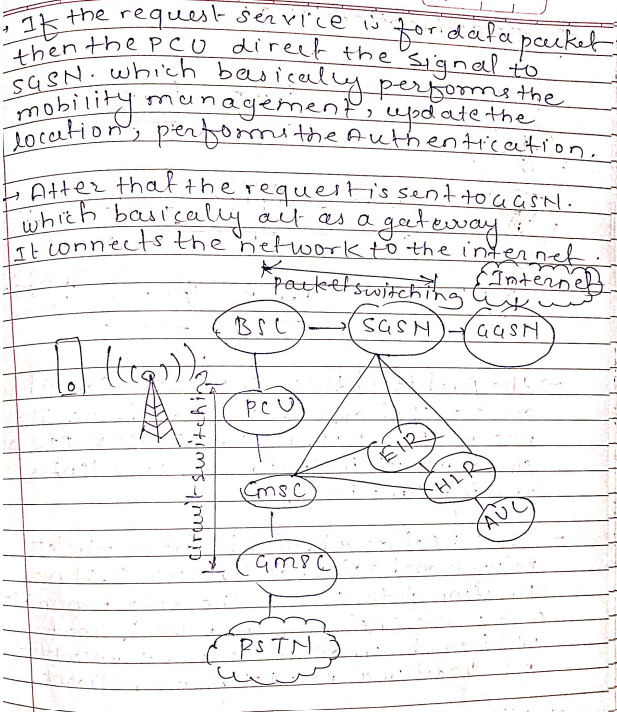 , If the request service is for data packet
then the PCU direct the signal to
SGSN. which basically performs the
mobility management, update the
location, performs the Authentication.
→ After that the request is sent to GGSN.
which basically act as a gateway.
It connects the network to the internet.
packet switching
Internet
BSC
SGSN
GGSN
circuit switching
PCU
EIR
HLR
GMSC
AUC
GMSC
PSTN